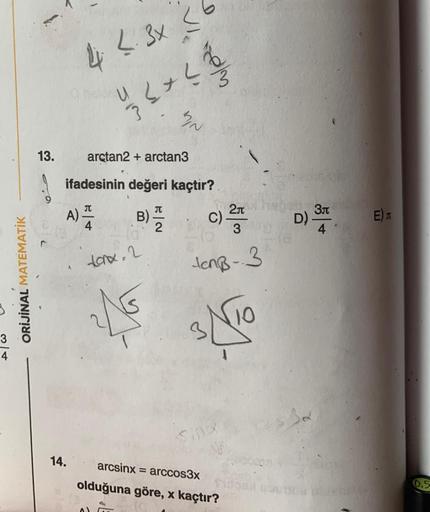 4 ≤ 3x ≤ 6
13. arctan2 + arctan3
ifadesinin değeri kaçtır?
A) π/4 B) π/2 C) 2π/3 D) 3π/4 E) π
tanα = 2 tanβ = 3
2 √5 1
3 √10 1
ORİJİNAL MATEMATİK
3/4
14. arcsinx = arccos3x
olduğuna göre, x kaçtır?